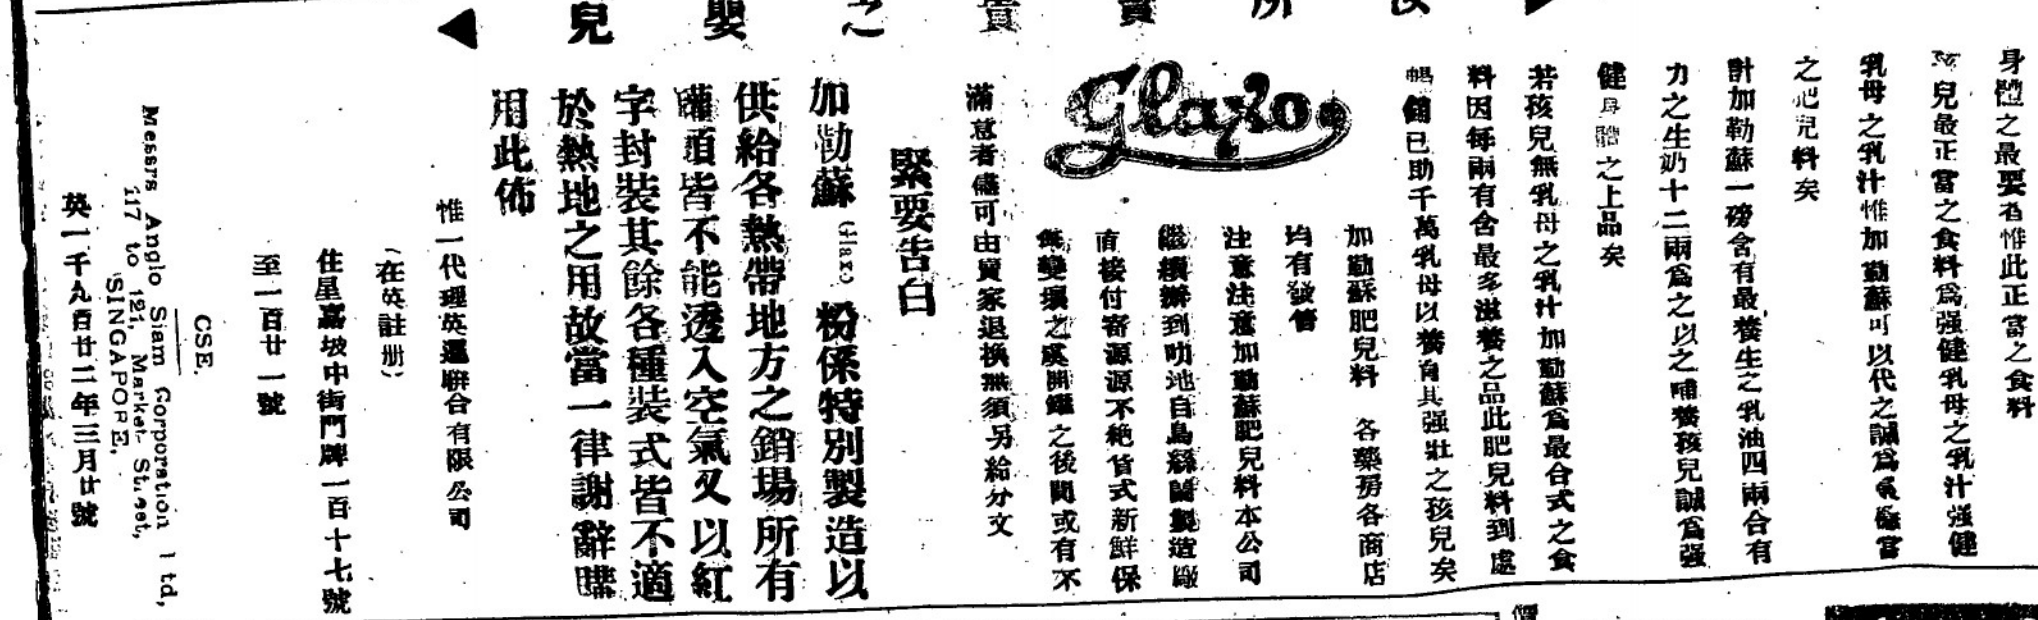 兒 嬰 之 賣
身體之最要者惟此正當之食料
孩兒最正當之食料爲强健乳母之乳汁强健
乳母之乳汁惟加勒蘇可以代之誠爲
之肥兒料矣
計加勒蘇一磅含有最養生之乳油四兩合有
力之生奶十二兩爲之以之哺養孩兒誠爲强
健身體之上品矣
若孩兒無乳母之乳汁加勒蘇爲最合式之食
料因每兩有含最多滋養之品此肥兒料到處
暢銷已助千萬乳母以養育其强壯之孩兒矣
加勒蘇肥兒料 各藥房各商店
均有發售
注意注意加勒蘇肥兒料本公司
繼續辦到叻地自烏絲蘭製造廠
直接付寄源源不絶貨式新鮮保
無變壞之虞開罐之後間或有不
Glaxo
滿意者儘可由買家退換無須另給分文
緊要告白
加勒蘇 (Glaxo) 粉係特別製造以
供給各熱帶地方之銷場所有
罐頭皆不能透入空氣又以紅
字封裝其餘各種裝式皆不適
於熱地之用故當一律謝辭購
用此佈
惟一代理英暹聯合有限公司
(在英註册)
住星嘉坡中街門牌一百十七號
至一百廿一號
CSE.
Messrs Anglo Siam Corporation Ltd,
117 to 121, Market Street,
SINGAPORE.
英一千九百廿二年三月廿號